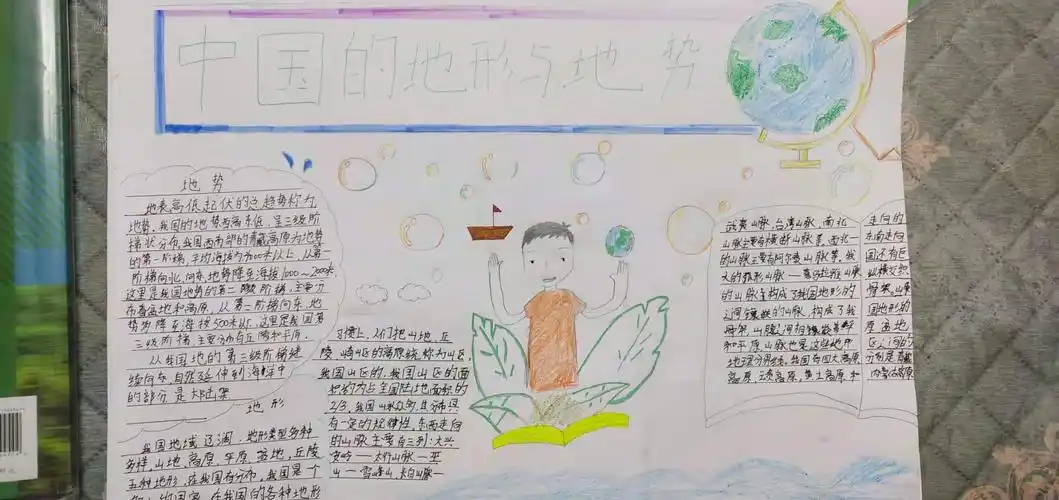 中国的地形与地势
地势
地表高低起伏的总趋势称为
地势。我国的地势西高东低，呈三级阶
梯状分布。我国西南部的青藏高原为地势
的第一阶梯，平均海拔为4000米以上，从第一
阶梯向北、向东，地势降至海拔1000～2000米，
这里是我国地势的第二级阶梯，主要分
布着盆地和高原。从第二阶梯向东，地
势降至海拔500米以下，这里是我国第
三级阶梯，主要分布着丘陵和平原。
从我国地的第三级阶梯继
续向东，自然延伸到海洋中
的部分是大陆架
地形
我国地域辽阔，地形类型多种
多样，山地、高原、平原、盆地、丘陵
五种地形，在我国有分布，我国是个
的国家。在我国的各种地形
习惯上，人们把山地、丘
陵、崎岖的高原统称为山区。
我国山区的，我国山区的面
积约为占全国陆地面积的
2/3。我国山脉众多，且分布具
有一定的规律性。东西走向
的山脉主要有三列：大兴
安岭——太行山脉——巫
山——雪峰山，长白山脉—
武夷山脉，台湾山脉，南北
山脉主要有横断山脉等，西北—
的山脉主要有阿尔泰山脉等，我
大的弧形山脉——喜马拉雅山脉
的山脉构成了我国地形的
骨架，山脉
和平原，山脉也是这些地形
地理分界线，我国有四大高原
高原、云贵高原、黄土高原和
走向的
东南走向
国还有巨
纵横交织
骨架。山脉
国地形的
原、盆地、
区。
分别是青藏
内蒙古高原